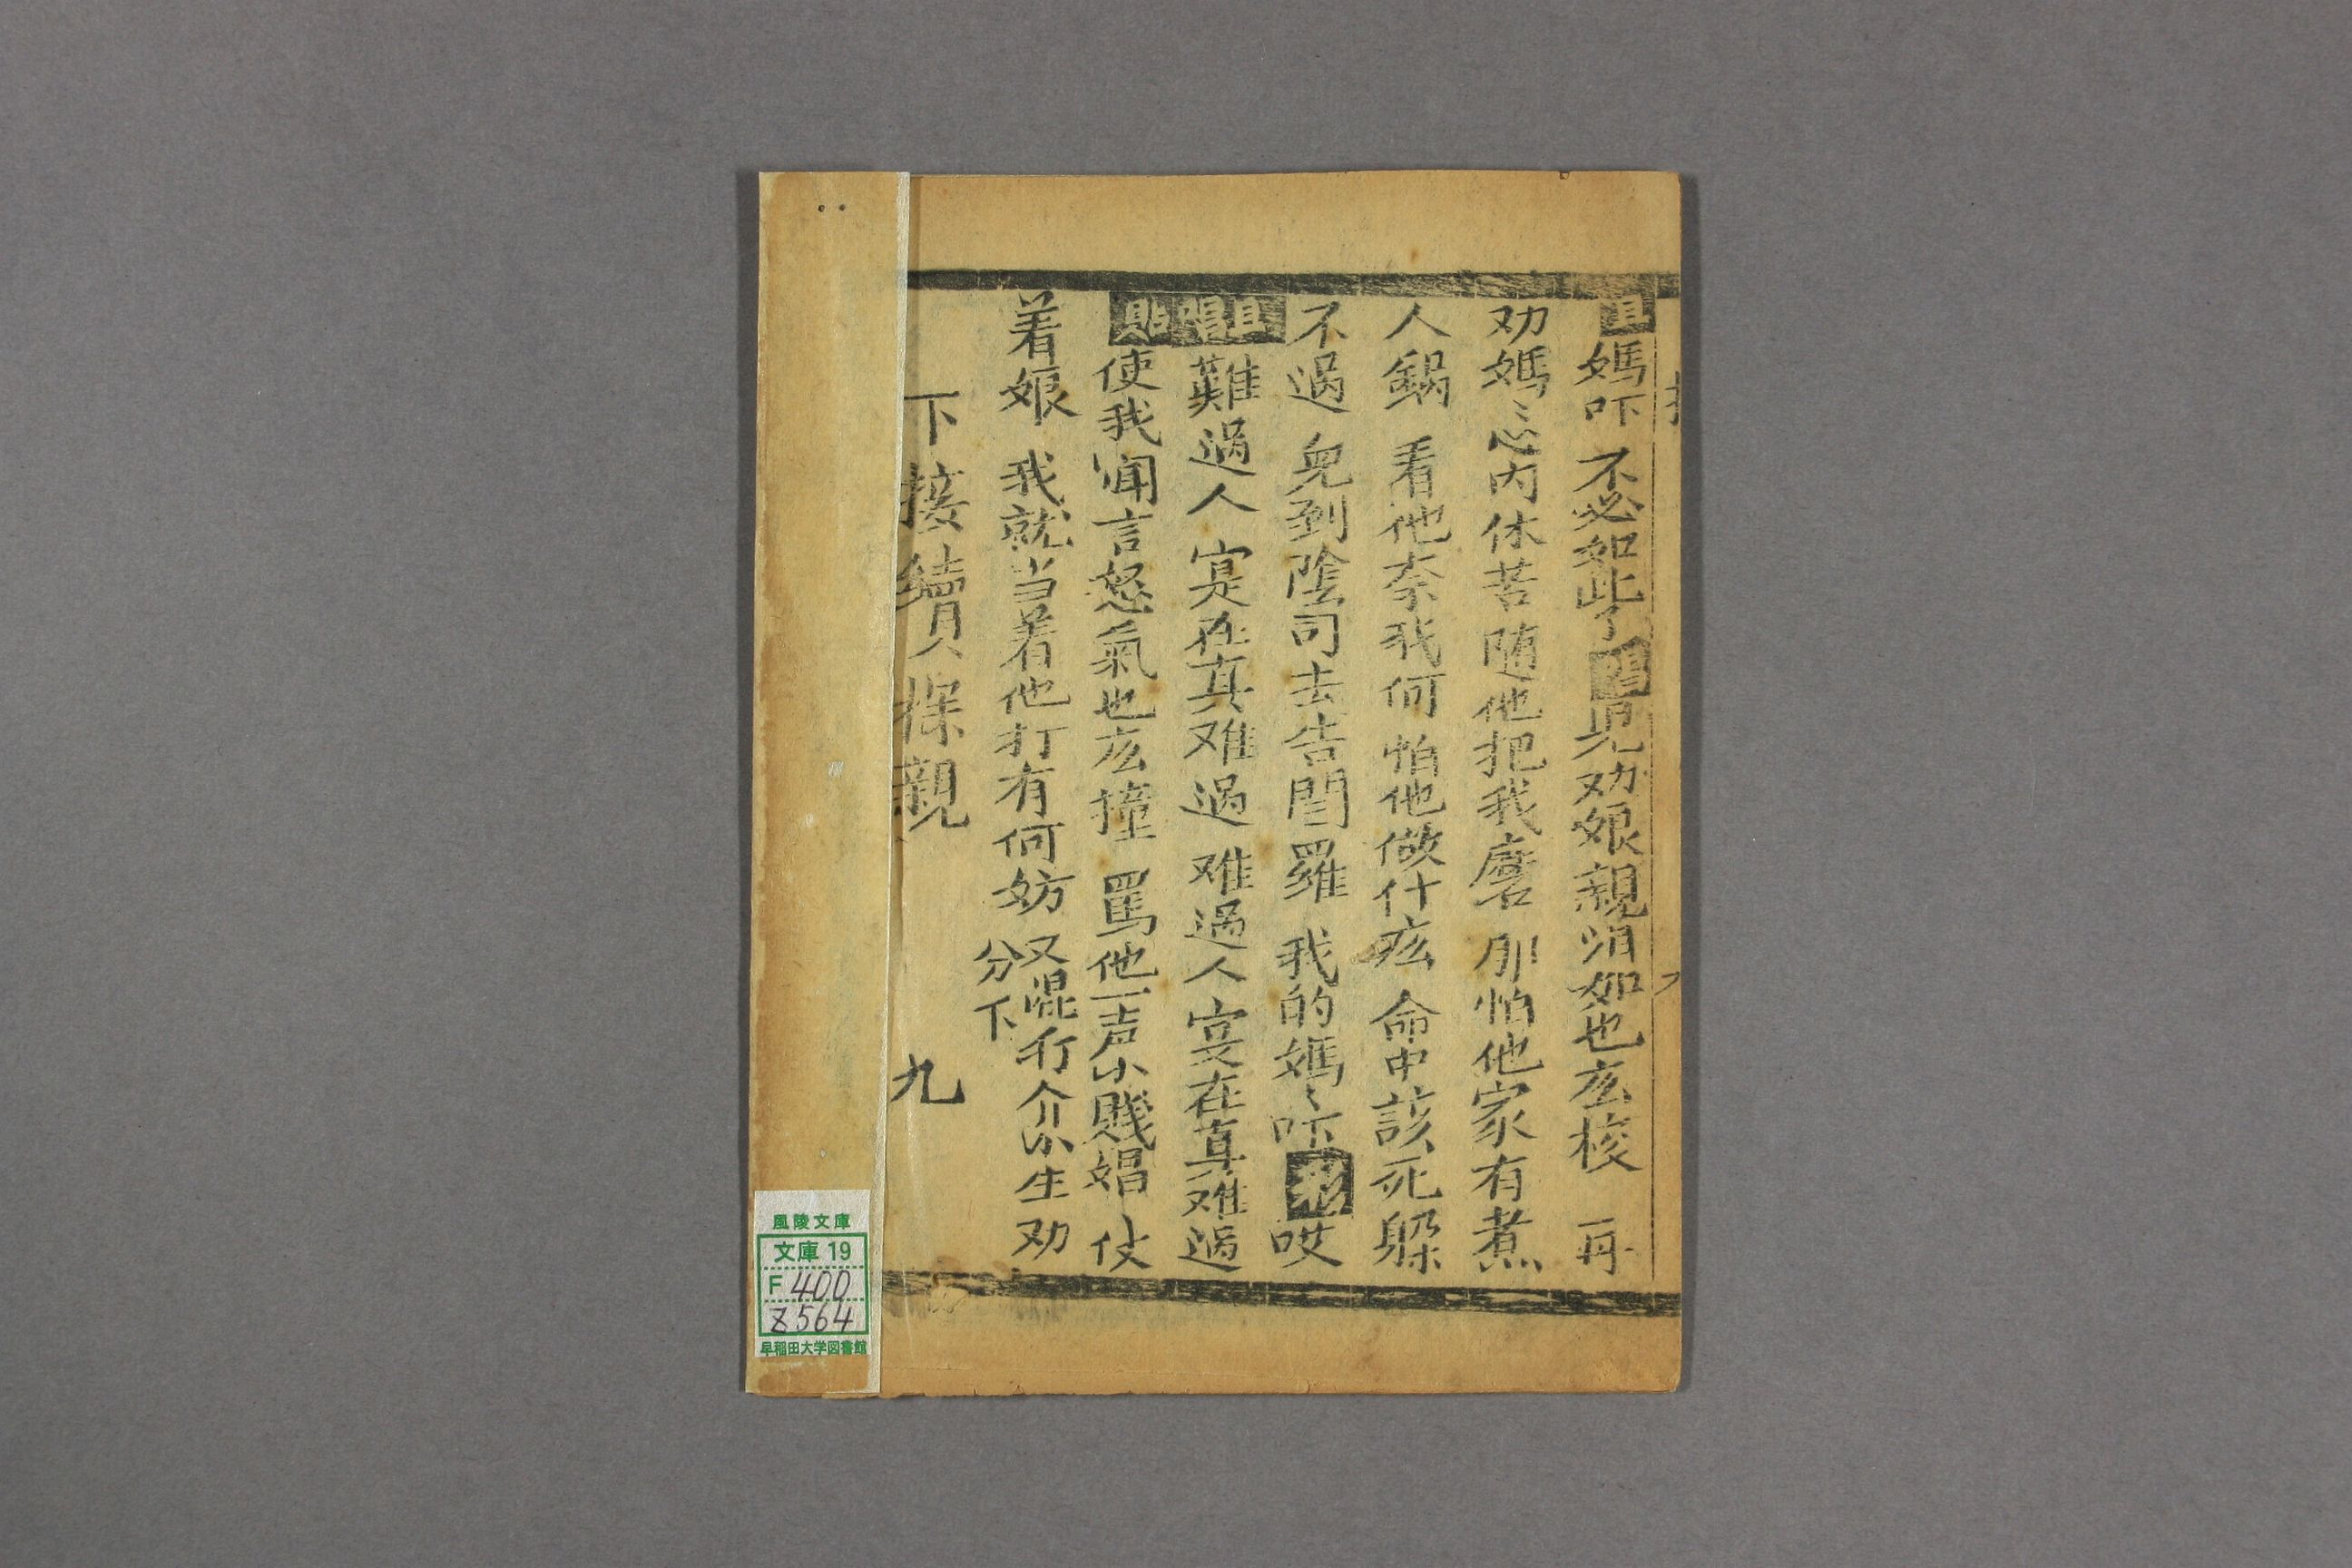 旦 媽吓 不必如此了 唱 児劝娘親 消如也庅梭 再
劝媽〻 忘内休苦 随他把我磨 那怕他家有煮
人鍋 看他奈我何 怕他做什庅 命中該死躱
不過 兒到陰司去告閻羅 我的媽〻吓 哎
旦唱 難過人 寔在真难過 难過人 寔在真难過
貼 使我闻言怒氣也庅撞 罵他一声小賤娼 仗
着娘 我就当着他打有何妨 又混打介 小生劝
分下
下接續貝探親
九
風陵文庫
文庫 19
F 400
Z 564
早稲田大学図書館